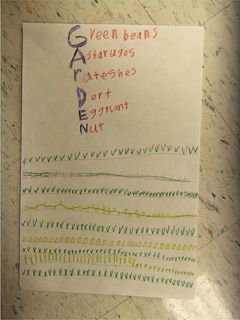 Green beans
Astaruges
Rateshes
Dert
Eggplant
Nut